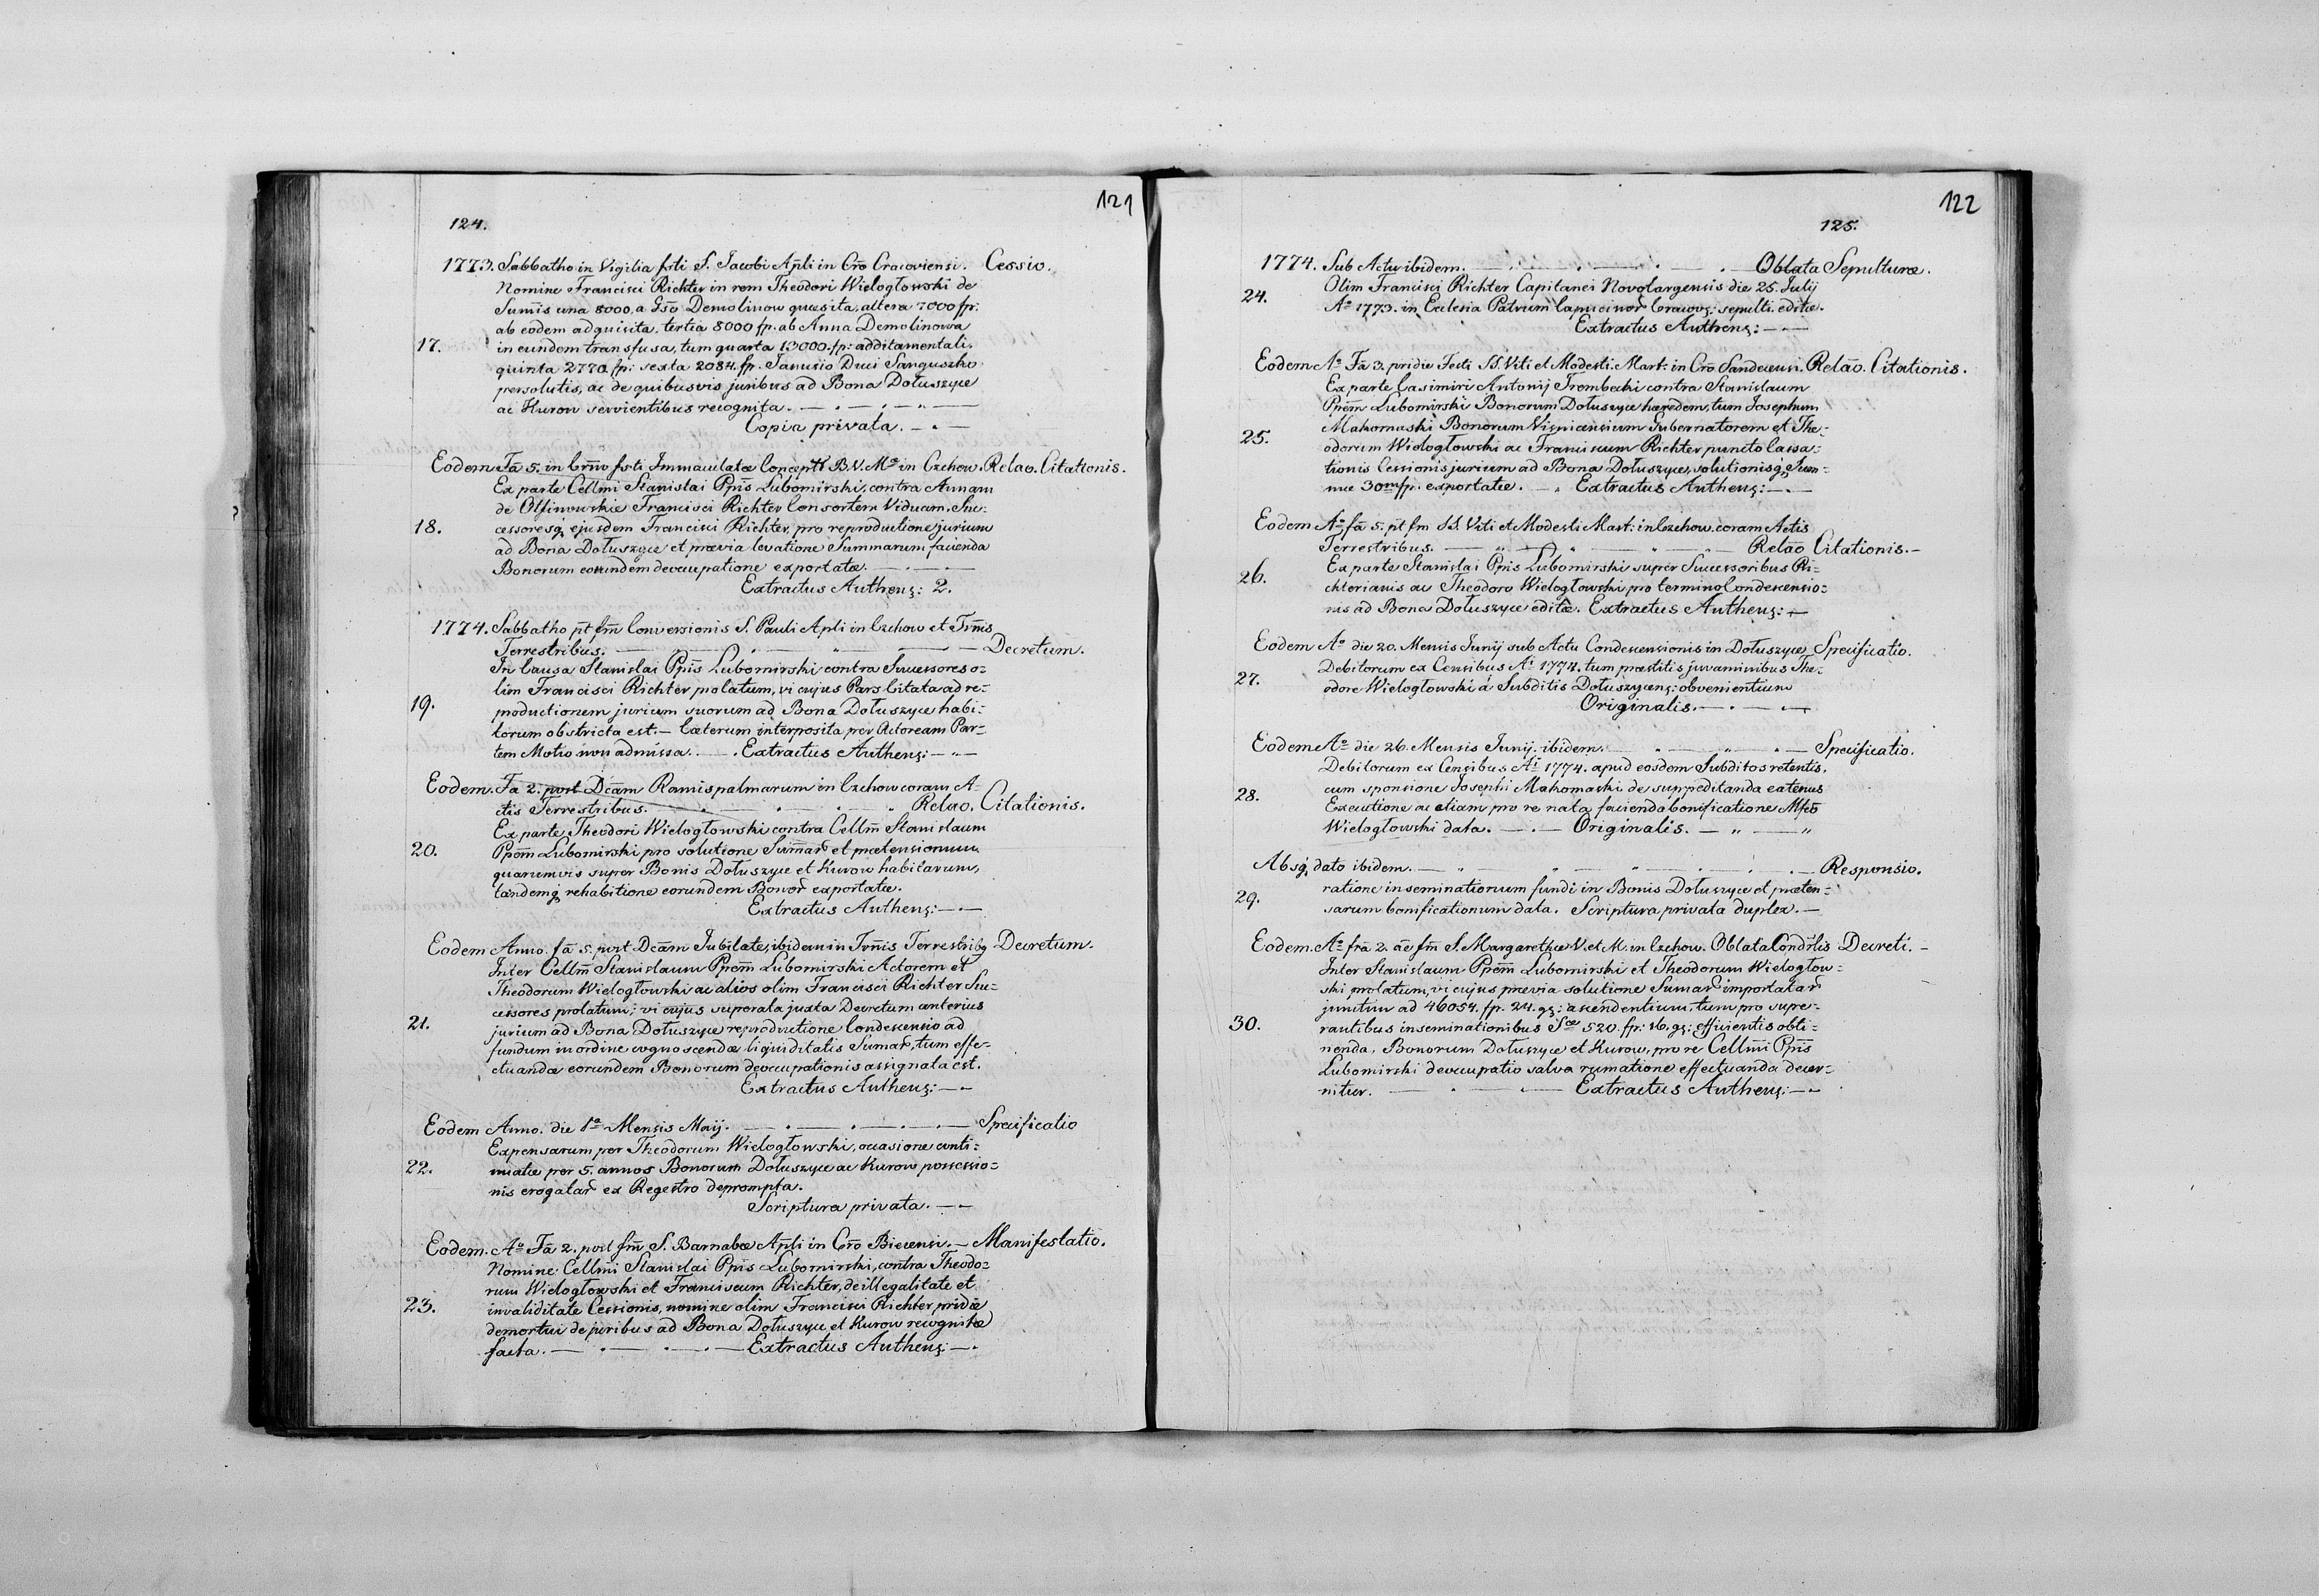 121
124.
1773. Sabbatho in Vigilia fsti S. Jacobi Apli in Cro Cracoviensi. Cessio.
Nomine Francisci Richter in rem Theodori Wielogłowski de
Sumis una 8000, a Gso Demolinow quæsita, altera 7000 fp:
ab eodem adquisita, tertia 8000 fp. ab Anna Demolinowa
17. in eundem transfusa, tum quarta 13000. fp: additamentali.
quinta 2770 fp: sexta 2084. fp. Janusio Duci Sanguszko
persolutis, ac de quibusvis juribus ad Bona Dołuszyce
ac Kurow servientibus recognita.
Copia privata.
Eodem Fa 5. in crno fsti Immaculatæ Concept B.V.Mæ in Czchow. Relao. Citationis.
Ex parte Cellmi Stanislai Ppis Lubomirski, contra Annam
de Olszinowskie Francisci Richter Consortem Viduam, Suc:
18. cessoresq ejusdem Francisci Richter, pro reproductione jurium
ad Bona Dołuszyce et prævia levatione Summarum facienda
Bonorum eorundem devocupatione exportatæ.
Extractus Authens: 2.
1774. Sabbatho pt fm Conversionis S. Pauli Apli in Czchow et Trmis
Terrestribus. Decretum.
In Causa Stanislai Ppis Lubomirski contra Successores o:
lim Francisci Richter prolatum, vi cujus Pars Citata ad re:
19. productionem jurium suorum ad Bona Dołuszyce habi:
torum obstricta est. Cæterum interposita per Actoream Par:
tem Motio non admissa. Extractus Authens:
Eodem. Fa 2. post Dcam Ramispalmarum in Czchow coram A:
ctis Terrestribus. Relao. Citationis.
Ex parte Theodori Wielogłowski contra Cellm Stanislaum
20. Ppem Lubomirski pro solutione Sumar et prætensionum
quarumvis super Bonis Dołuszyce et Kurow habitarum,
tandemq rehabitione eorundem Bonor exportatæ.
Extractus Authens:
Eodem Anno. fa 5. post Dcam Jubilate, ibidem in Trmis Terrestribq Decretum.
Inter Cellm Stanislaum Ppem Lubomirski Actorem et
Theodorum Wielogłowski ac alios olim Francisci Richter Suc:
cessores prolatum; vi cujus superata juxta Decretum anterius
21. jurium ad Bona Dołuszyce reproductione Condescensio ad
fundum in ordine cognoscendæ liquiditatis Sumar, tum effe:
ctuandæ eorundem Bonorum devocupationis assignata est.
Extractus Authens:
Eodem Anno. die 1a Mensis Maij. Specificatio
Expensarum per Theodorum Wielogłowski, occasione conti:
22. nuatæ per 5. annos Bonorum Dołuszyce ac Kurow possessio:
nis erogatar ex Regestro deprompta.
Scriptura privata.
Eodem. Ao Fa 2. post fm S. Barnabæ Apli in Cro Biecensi. Manifestatio.
Nomine Cellmi Stanislai Ppis Lubomirski, contra Theodo:
rum Wielogłowski et Franciscum Richter, de illegalitate et
23. invaliditate Cessionis, nomine olim Francisci Richter, pridie
demortui de juribus ad Bona Dołuszyce et Kurow recognitæ
facta. Extractus Authens:
122
125.
1774. Sub Actu ibidem. Oblata Sepulturæ.
Olim Francisci Richter Capitanei Novotargensis die 25. Julij
24. Ao 1773. in Ecclesia Patrum Capucinor Cracovs: sepulti. editæ.
Extractus Authens:
Eodem Ao Fa 3. pridie Festi SS. Viti et Modesti. Mart: in Cro Sandecensi. Relao. Citationis.
Ex parte Casimiri Antonij Trembecki contra Stanislaum
Ppem Lubomirski Bonorum Dołuszyce hæredem, tum Josephum
25. Makomaski Bonorum Visnicensium Gubernatorem et The:
odorum Wielogłowski ac Franciscum Richter puncto Cassa:
tionis Cessionis jurium ad Bona Dołuszyce, solutionisq Sum:
mæ 30m fp. exportatæ. Extractus Authens:
Eodem Ao fa 5. pt fm SS. Viti et Modesti Mart: in Czchow. coram Actis
Terrestribus. Relao Citationis.
26. Ex parte Stanislai Ppis Lubomirski super Successoribus Ri:
chterianis ac Theodoro Wielogłowski, pro termino Condescensio:
nis ad Bona Dołuszyce editæ. Extractus Authens:
Eodem Ao die 20. Mensis Junij sub Actu Condescensionis in Dołuszyce Specificatio.
Debitorum ex Censibus Ai 1774. tum præstitis juvaminibus The:
27. odoro Wielogłowski a Subditis Dołuszycens: obvenientium
Originalis.
Eodem Ao die 26. Mensis Junij. ibidem. Specificatio.
Debitorum ex Censibus Ai 1774. apud eosdem Subditos retentis,
28. cum sponsione Josephi Makomaski de suppeditanda eatenus
Executione ac etiam pro re nata facienda bonificatione Mfco
Wielogłowski data. Originalis.
Absq dato ibidem. Responsio.
29. ratione inseminationum fundi in Bonis Dołuszyce et præten:
sarum bonificationum data. Scriptura privata duplex.
Eodem. Ao fra 2. ae fm S. Margarethæ V. et M. in Czchow. Oblata Condrlis Decreti.
Inter Stanislaum Ppem Lubomirski et Theodorum Wielogłow:
ski prolatum, vi cujus prævia solutione Sumar importatar
junctim ad 46054. fp. 24. gs: ascendentium, tum pro supe:
30. rantibus inseminationibus Sæ 520. fp: 16. gs: efficientis obti:
nenda, Bonorum Dołuszyce et Kurow, pro re Cellmi Ppis
Lubomirski devocupatio salva rumatione effectuanda decer:
nitur. Extractus Authens: